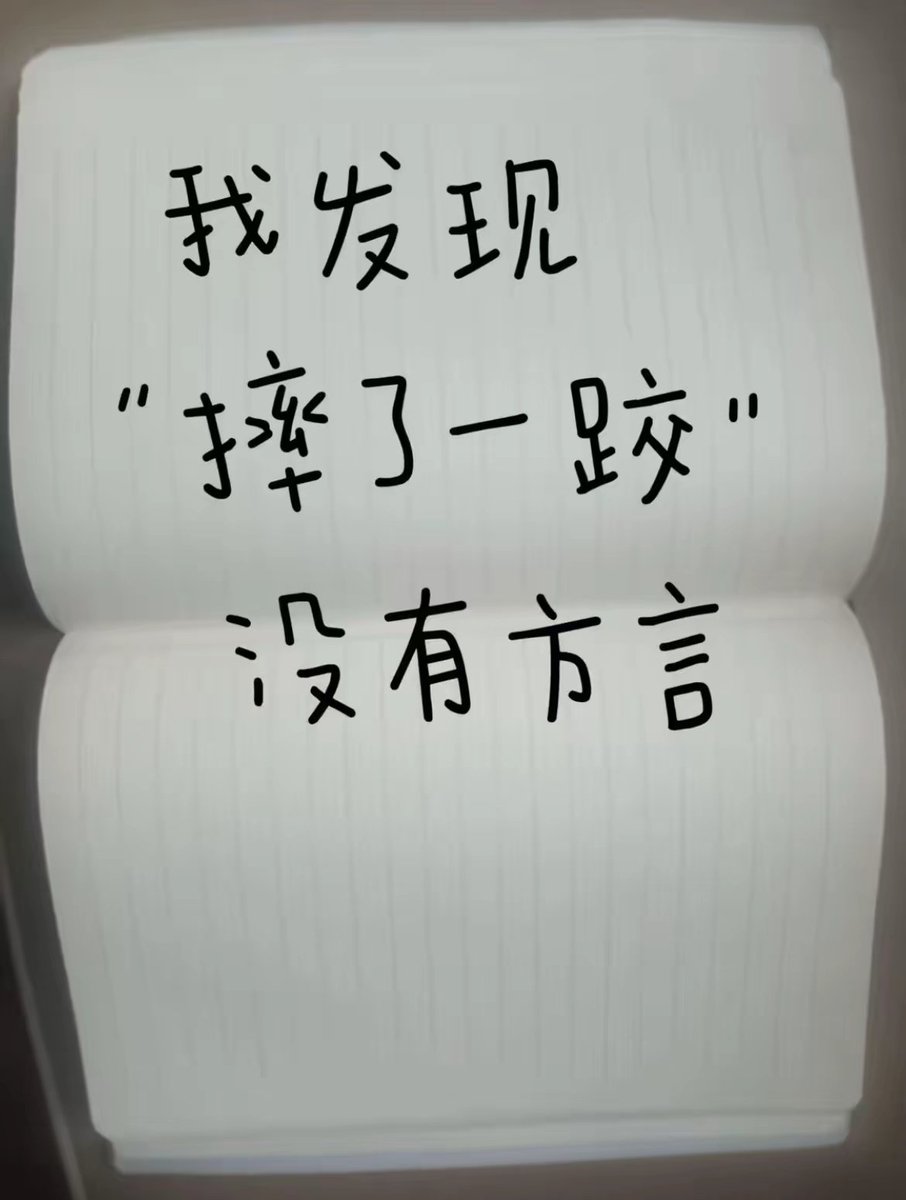 我发现
"摔了一跤"
没有方言